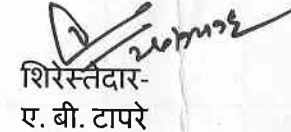 शिरेस्तेदार-
ए. बी. टापरे